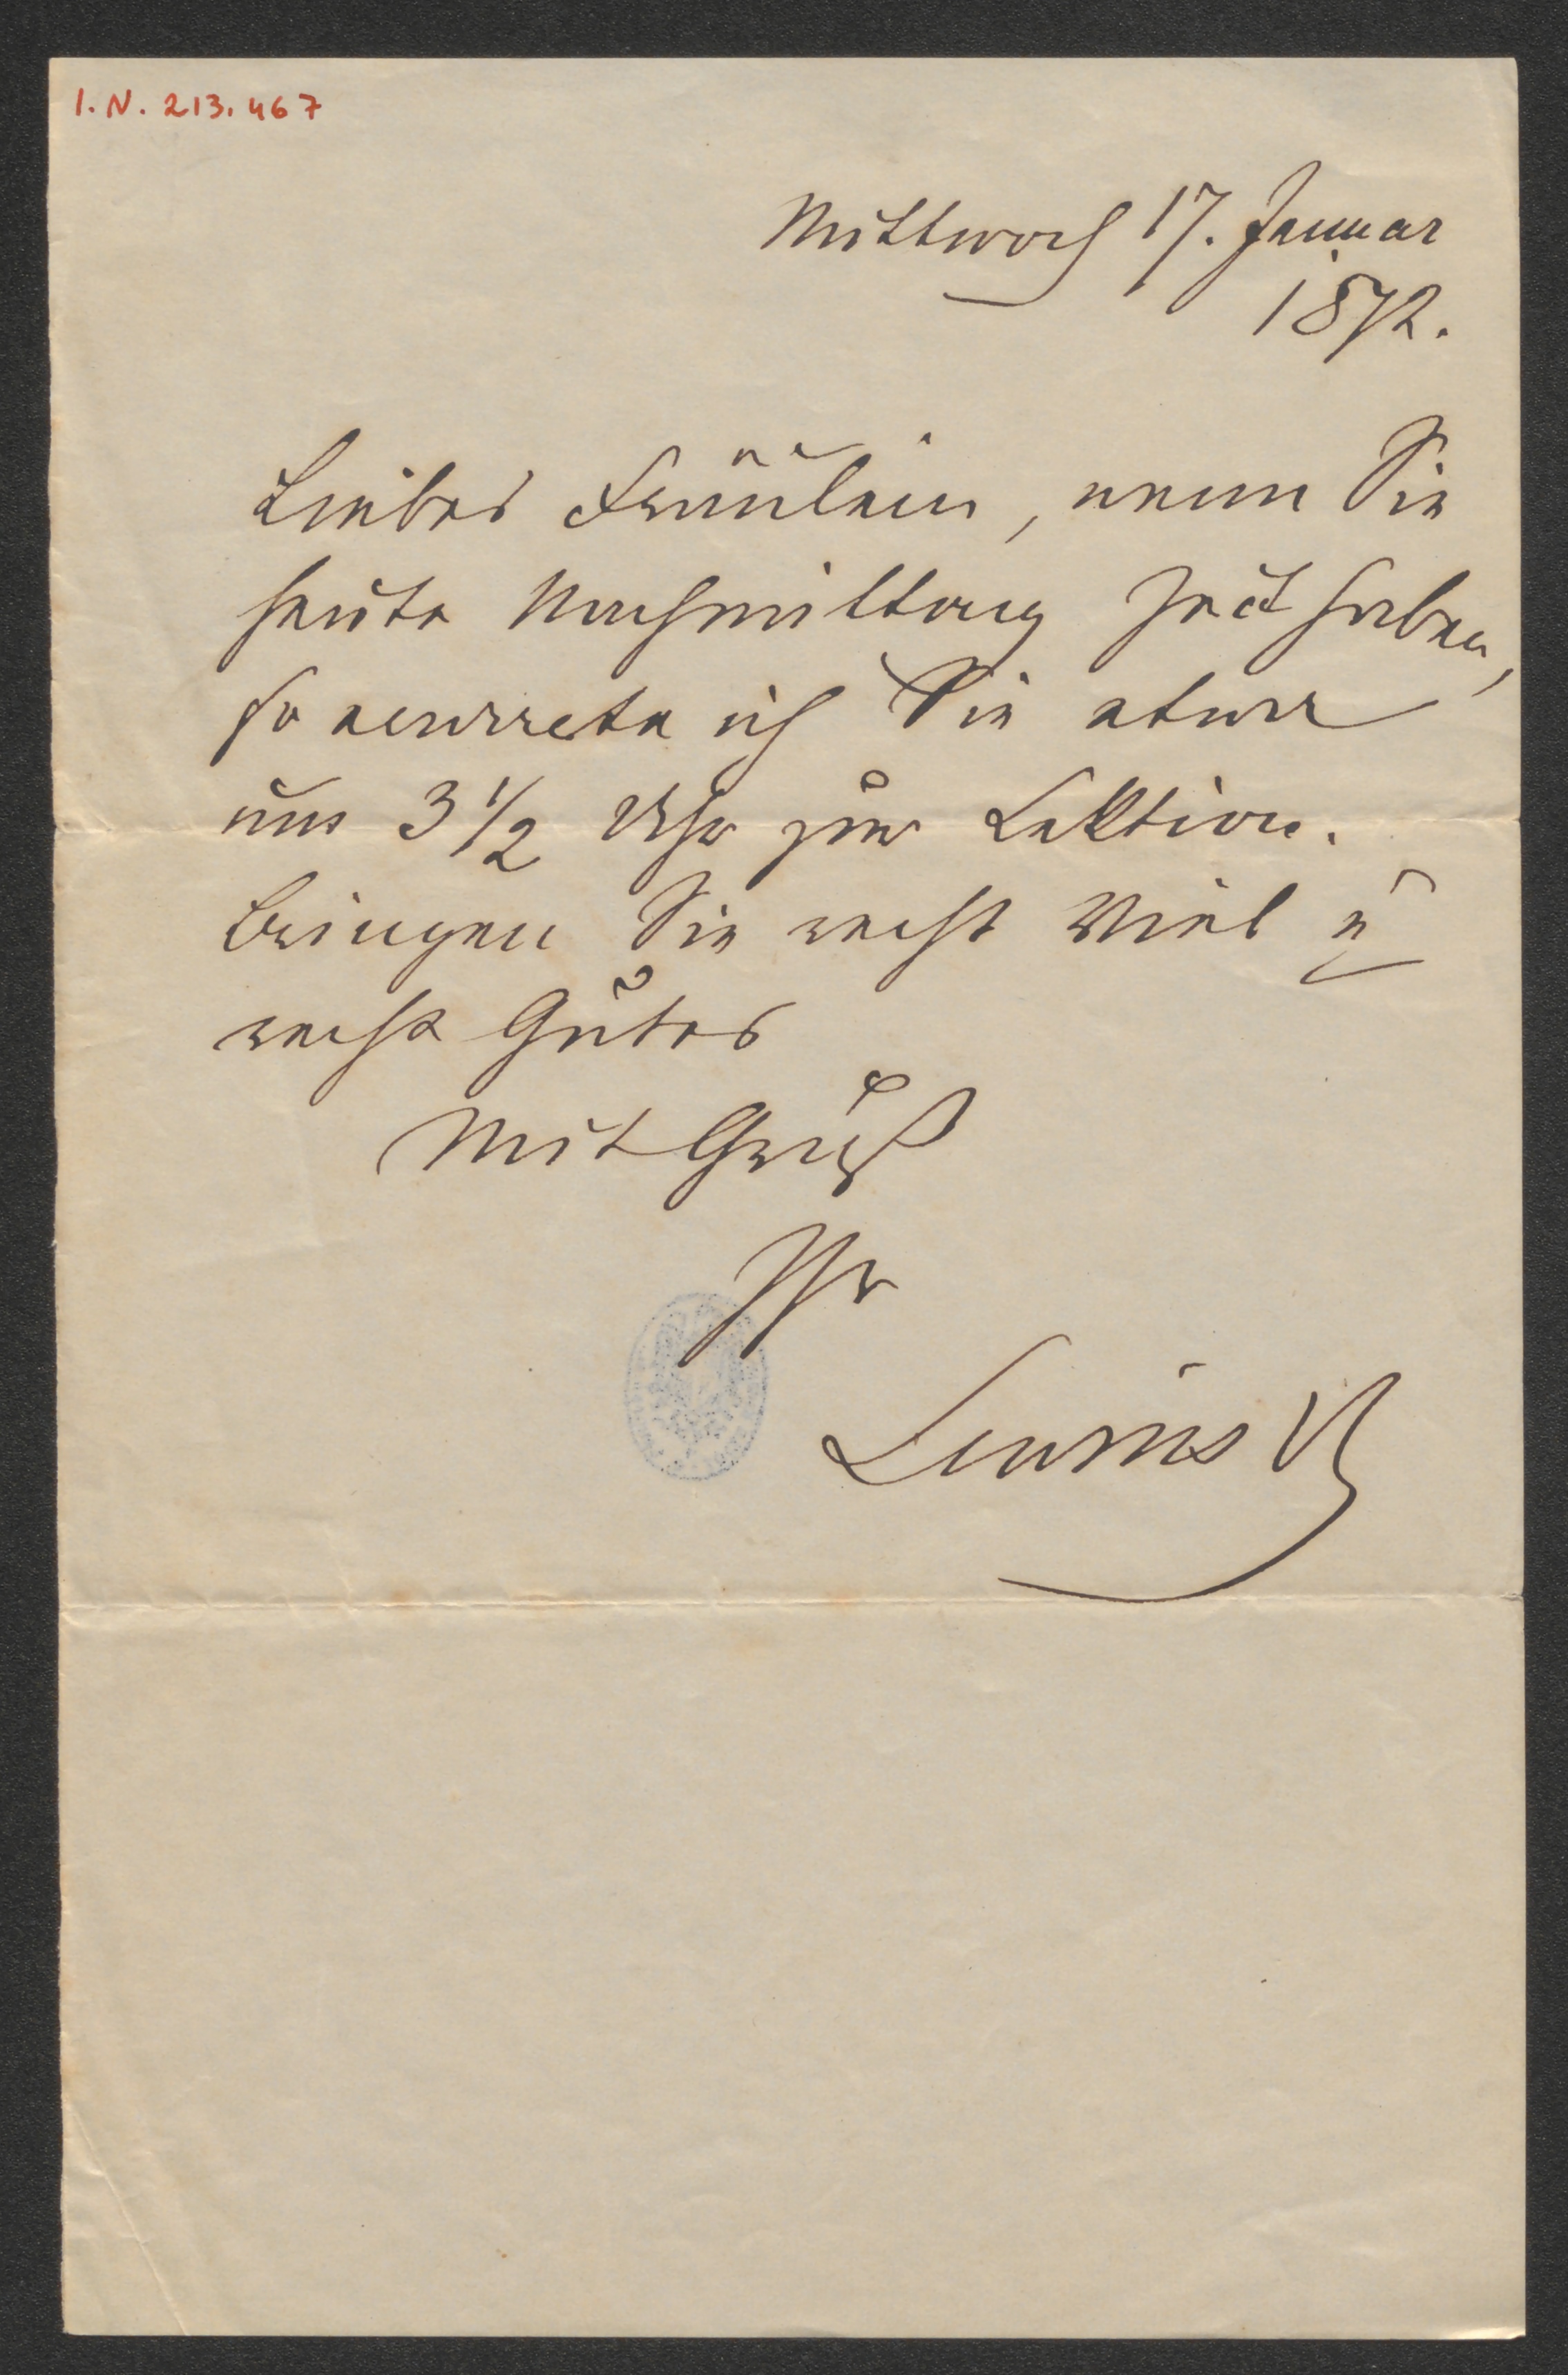 I.N. 213.467
Mittwoch 17. Januar
1872.
Liebes Fräulein, wenn Sie
heute Nachmittag Zeit haben,
so erwarte ich Sie etwa
um 3 1/2 Uhr zur Lektion.
Bringen Sie recht Viel u
recht Gutes
Mit Gruß
Ihr